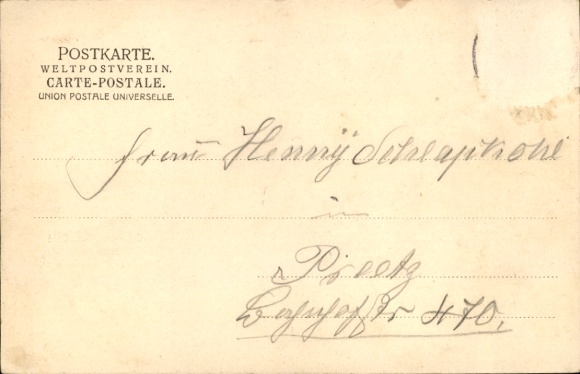 POSTKARTE.
WELTPOSTVEREIN.
CARTE-POSTALE.
UNION POSTALE UNIVERSELLE.
Frau Henny Schlapkohl
in
Preetz
Bahnhofstr 470.